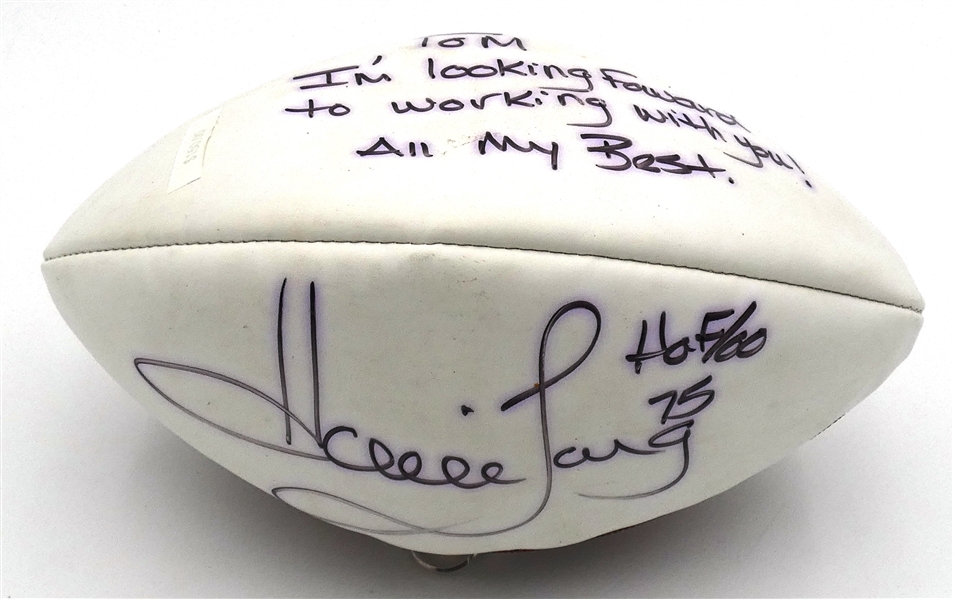 TOM
I'm looking Forward
to working with you!
All My Best.
Howie Long
HoF/00
75